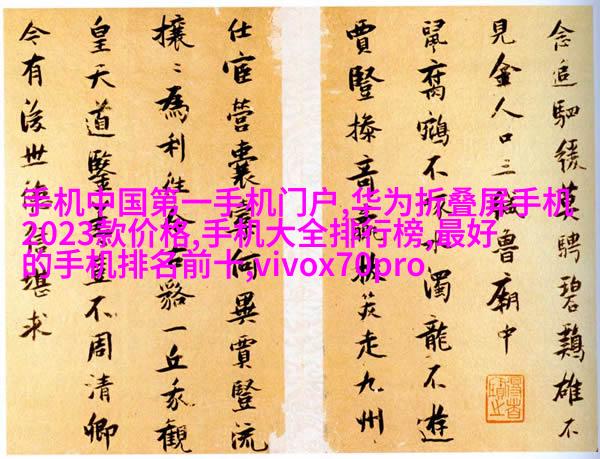 念追駟緩莫騁碧鷄雄不
見金人口三緘魯廟中
鼠腐鵷不水濁龍不遊
賈豎操走九州
仕宦營囊何異賈豎流
攘〻為利往一丘我觀
皇天道鑒不周清卿
今有後世堪求
手机中国第一手机门户,华为折叠屏手机
2023款价格,手机大全排行榜,最好
的手机排名前十,vivox70pro